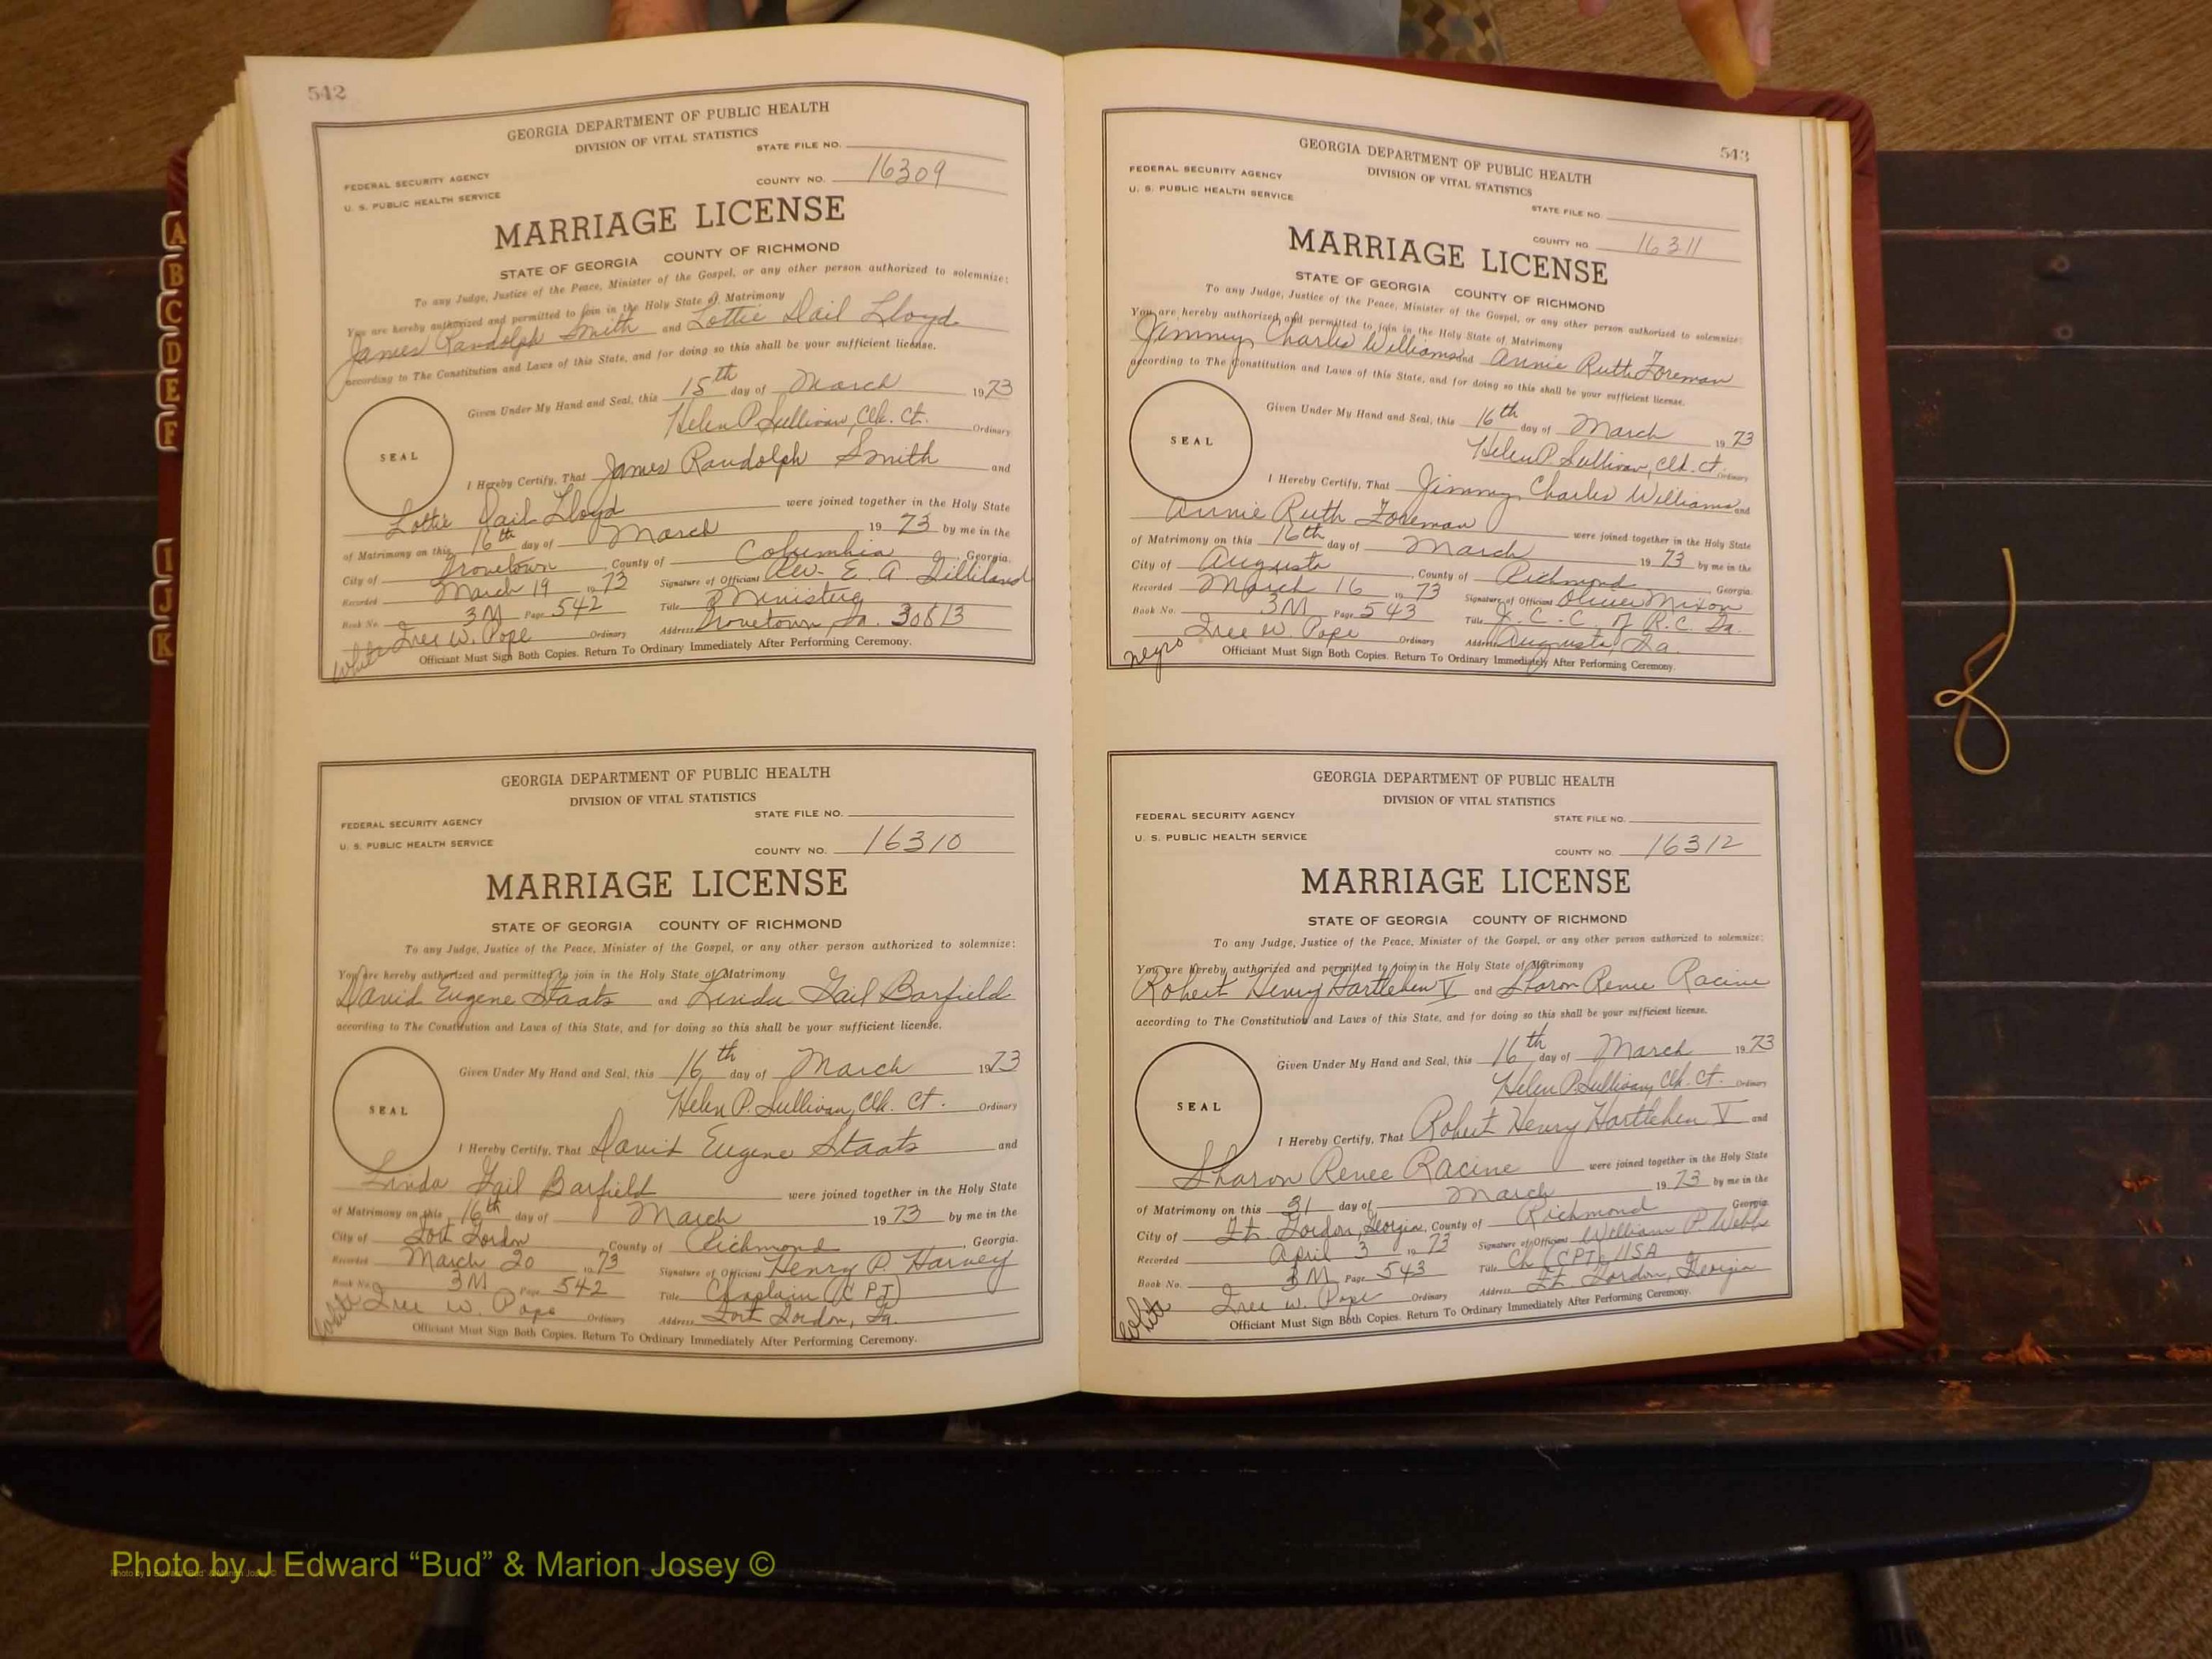 542
GEORGIA DEPARTMENT OF PUBLIC HEALTH
DIVISION OF VITAL STATISTICS
STATE FILE NO.
FEDERAL SECURITY AGENCY
COUNTY NO. 16309
U. S. PUBLIC HEALTH SERVICE
MARRIAGE LICENSE
STATE OF GEORGIA COUNTY OF RICHMOND
To any Judge, Justice of the Peace, Minister of the Gospel, or any other person authorized to solemnize:
You are hereby authorized and permitted to join in the Holy State of Matrimony
James Randolph Smith and Lottie Dail Lloyd
according to The Constitution and Laws of this State, and for doing so this shall be your sufficient license.
Given Under My Hand and Seal, this 15th day of March 1973
Helen P. Sullivan, Clk. Ct. Ordinary
SEAL
I Hereby Certify, That James Randolph Smith and
Lottie Dail Lloyd were joined together in the Holy State
of Matrimony on this 16th day of March 1973 by me in the
City of Grovetown County of Columbia, Georgia.
Recorded March 19 1973 Signature of Officiant Rev. E. A. Gilliland
Book No. 3M Page 542 Title Minister
Iree W. Pope Ordinary Address Grovetown, Ga. 30813
White
Officiant Must Sign Both Copies. Return To Ordinary Immediately After Performing Ceremony.
GEORGIA DEPARTMENT OF PUBLIC HEALTH
DIVISION OF VITAL STATISTICS
STATE FILE NO.
FEDERAL SECURITY AGENCY
U. S. PUBLIC HEALTH SERVICE
COUNTY NO. 16310
MARRIAGE LICENSE
STATE OF GEORGIA COUNTY OF RICHMOND
To any Judge, Justice of the Peace, Minister of the Gospel, or any other person authorized to solemnize:
You are hereby authorized and permitted to join in the Holy State of Matrimony
David Eugene Staats and Linda Gail Barfield
according to The Constitution and Laws of this State, and for doing so this shall be your sufficient license.
Given Under My Hand and Seal, this 16th day of March 1973
Helen P. Sullivan, Clk. Ct. Ordinary
SEAL
I Hereby Certify, That David Eugene Staats and
Linda Gail Barfield were joined together in the Holy State
of Matrimony on this 16th day of March 1973 by me in the
City of Fort Gordon County of Richmond, Georgia.
Recorded March 20 1973 Signature of Officiant Henry P. Harvey
Book No. 3M Page 542 Title Chaplain (CPT)
Iree W. Pope Ordinary Address Fort Gordon, Ga.
White
Officiant Must Sign Both Copies. Return To Ordinary Immediately After Performing Ceremony.
543
GEORGIA DEPARTMENT OF PUBLIC HEALTH
DIVISION OF VITAL STATISTICS
FEDERAL SECURITY AGENCY
U. S. PUBLIC HEALTH SERVICE
STATE FILE NO.
COUNTY NO. 16311
MARRIAGE LICENSE
STATE OF GEORGIA COUNTY OF RICHMOND
To any Judge, Justice of the Peace, Minister of the Gospel, or any other person authorized to solemnize:
You are hereby authorized and permitted to join in the Holy State of Matrimony
Jimmy Charles Williams and Annie Ruth Foreman
according to The Constitution and Laws of this State, and for doing so this shall be your sufficient license.
Given Under My Hand and Seal, this 16th day of March 1973
Helen P. Sullivan, Clk. Ct. Ordinary
SEAL
I Hereby Certify, That Jimmy Charles Williams and
Annie Ruth Foreman were joined together in the Holy State
of Matrimony on this 16th day of March 1973 by me in the
City of Augusta, County of Richmond Georgia.
Recorded March 16 1973 Signature of Officiant Oliver Mixon
Book No. 3M Page 543 Title J. C. C. of R. C. Ga.
Iree W. Pope Ordinary Address Augusta, Ga.
negro
Officiant Must Sign Both Copies. Return To Ordinary Immediately After Performing Ceremony.
GEORGIA DEPARTMENT OF PUBLIC HEALTH
DIVISION OF VITAL STATISTICS
FEDERAL SECURITY AGENCY
STATE FILE NO.
U. S. PUBLIC HEALTH SERVICE
COUNTY NO. 16312
MARRIAGE LICENSE
STATE OF GEORGIA COUNTY OF RICHMOND
To any Judge, Justice of the Peace, Minister of the Gospel, or any other person authorized to solemnize:
You are hereby authorized and permitted to join in the Holy State of Matrimony
Robert Henry Hartlehen V and Sharon Renee Racine
according to The Constitution and Laws of this State, and for doing so this shall be your sufficient license.
Given Under My Hand and Seal, this 16th day of March 1973
Helen P. Sullivan, Clk. Ct. Ordinary
SEAL
I Hereby Certify, That Robert Henry Hartlehen V and
Sharon Renee Racine were joined together in the Holy State
of Matrimony on this 31 day of March 1973 by me in the
City of Ft. Gordon, Georgia, County of Richmond Georgia.
Recorded April 3 1973 Signature of Officiant William P. Webb
Book No. 3M Page 543 Title Ch (CPT) USA
Iree W. Pope Ordinary Address Ft. Gordon, Georgia
White
Officiant Must Sign Both Copies. Return To Ordinary Immediately After Performing Ceremony.
A
B
C
D
E
F
I
J
K
Photo by J Edward “Bud” & Marion Josey ©
Photo by J Edward “Bud” & Marion Josey ©